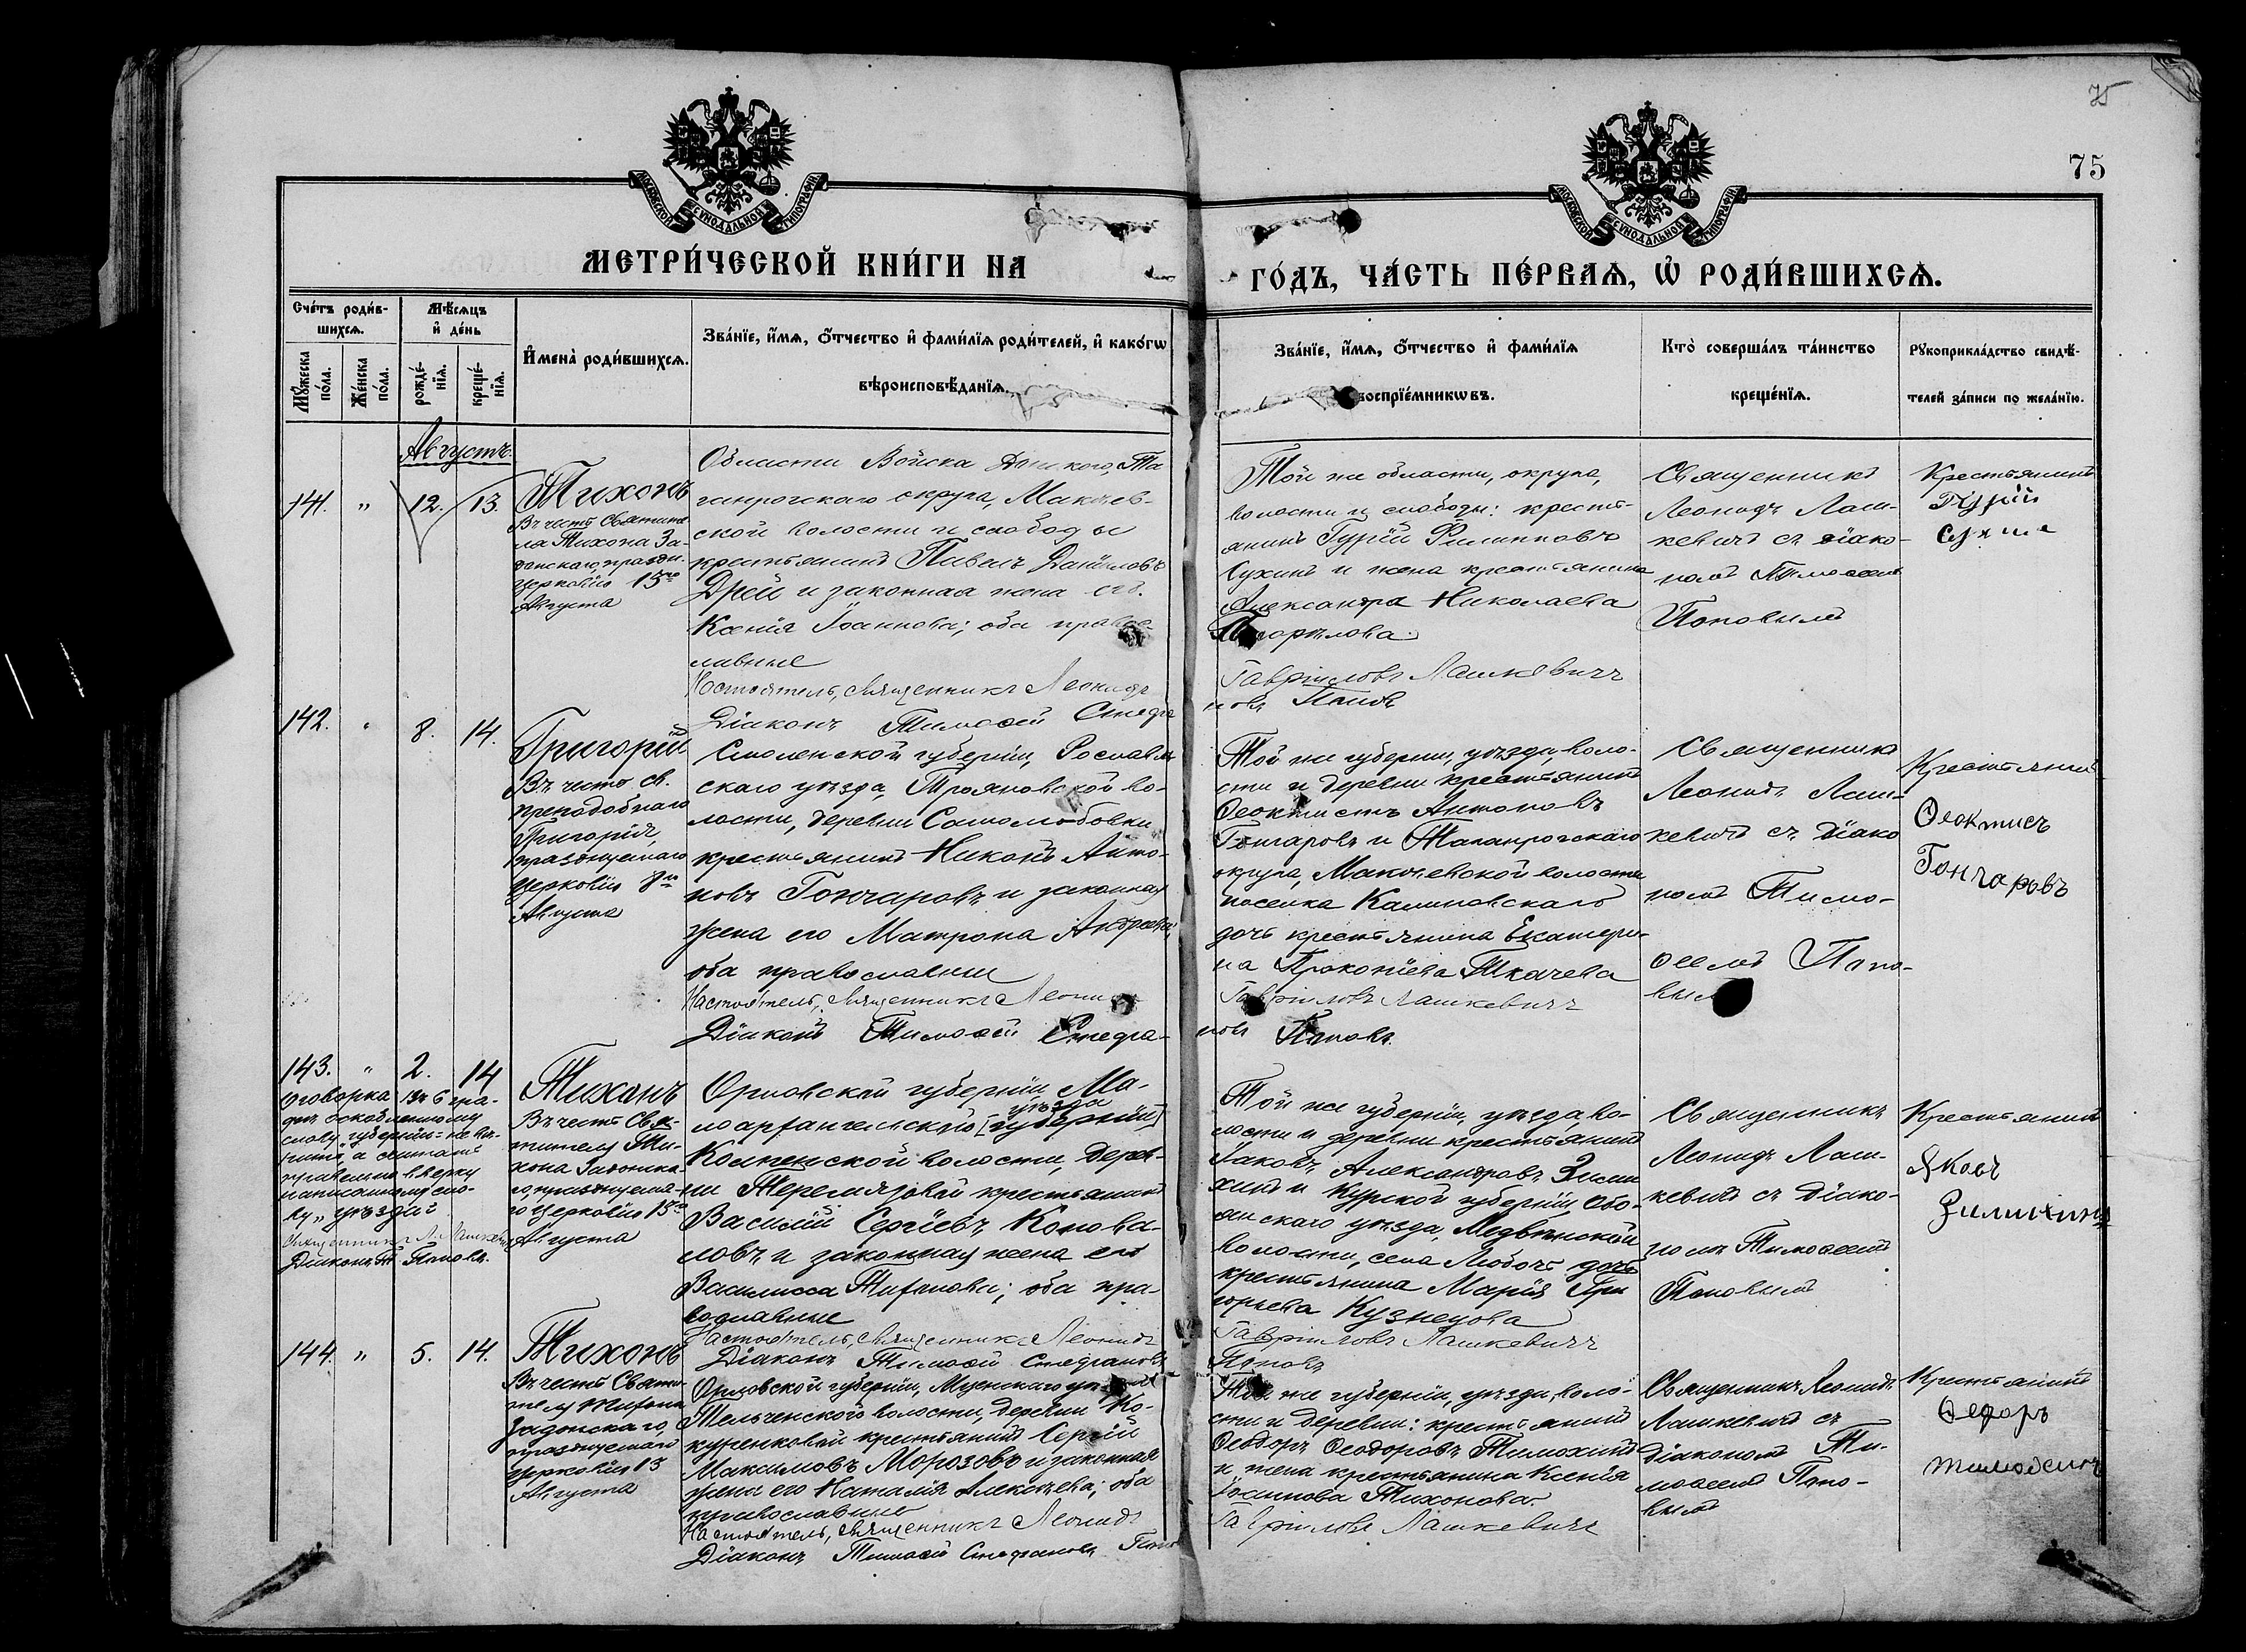 75
75
МОСКОВСКОЙ СУНОДАЛЬНОЙ ТИПОГРАФІИ
МОСКОВСКОЙ СУНОДАЛЬНОЙ ТИПОГРАФІИ
МЕТРИ́ЧЕСКОЙ КНИ́ГИ НА
ГО́ДЪ, ЧА́СТЬ ПЕ́РВАѦ, Ѽ РОДИ́ВШИХСѦ.
Сче́тъ роди́в-
шихсѧ.
Мꙋ́жеска
по́ла.
Же́нска
по́ла.
Мѣ́сѧцъ
и҆ де́нь
рожде́-
нїѧ.
креще́-
нїѧ.
И҆мена̀ роди́вшихсѧ.
Зва́нїе, и҆́мѧ, ѻ҆́тчество и҆ фами́лїѧ роди́телей, и҆ како́гѡ
вѣроисповѣ́данїѧ.
Зва́нїе, и҆́мѧ, ѻ҆́тчество и҆ фами́лїѧ
воспрїе́мникѡвъ.
Кто̀ соверша́лъ та́инство
креще́нїѧ.
Рꙋкоприкла́дство свидѣ́-
телей за́писи по жела́нїю.
Августъ.
141.
"
12.
13.
Тихонъ
Въ честь Святите
ля Тихона За-
донскаго, праздн.
Церковію 13го
Августа
Области Войска Донского, Та
ганрогскаго округа, Макеев-
ской волости и слободы
крестьянинъ Павелъ Даніиловъ
Дрей и законная жена его
Ксенія Іоаннова; оба право-
славные
Настоятель, священникъ Леонидъ
Діаконъ Тимоѳей Стефа
Той же области, округа,
волости и слободы: кресть-
янинъ Гурій Филипповъ
Сухинъ и жена крестьянина
Александра Николаева
Гавріиловъ Лашкевичъ
новъ Поповъ
Священникъ
Леонидъ Лаш-
кевичъ съ діако-
номъ Тимоѳеемъ
Поповымъ
Крестьянинъ
Гурій
142.
"
8.
14.
Григорій
Въ честь св.
преподобнаго
Григорія,
празднуемаго
Церковію 8го
Августа
Смоленской губерніи, Рославль
скаго уѣзда, Трояновской во-
лости, деревни Самолюбовки
крестьянинъ Никонъ Анто-
новъ Гончаровъ и законная
жена его Матрона Андреева;
оба православные
Настоятель, священникъ Леони
Діаконъ Тимоѳей Стефа-
Той же губерніи, уѣзда, воло-
сти и деревни крестьянинъ
Ѳеоктистъ Антоновъ
Гончаровъ и Таганрогскаго
округа, Макеевской волости
поселка Калиновскаго
дочь крестьянина Екатери-
на Прокопіева Ткачева
Гавріиловъ Лашкевичъ
новъ Поповъ.
Священникъ
Леонидъ Лаш-
кевичъ съ діако
номъ Тимо-
ѳеемъ Попо-
вымъ
Крестьянинъ
Ѳеоктисъ
Гончаровъ
143.
"
2.
14
Оговорка: Въ 6 гра-
фѣ оскобленному
слову "губерніи" не вѣ-
рить, а считать
правильно вверху
написанному сло-
ву "уѣзда".
Священникъ Л. Лашкевичъ
Діаконъ Т. Поповъ.
Тихонъ
Въ честь Свя-
тителя Ти-
хона Задонска-
го, празднуема-
го Церковію 13го
Августа
Орловской губерніи, Ма-
уѣзда
лоархангельскаго [губерніи]
Колпенской волости, дерев-
ни Теремязовой крестьянинъ
Василій Сергіевъ Конова
ловъ и законная жена его
Василисса Тифанова; оба пра-
вославные
Настоятель, священникъ Леонидъ
Діаконъ Тимоѳей Стефановъ
Той же губерніи, уѣзда, во-
лости и деревни крестьянинъ
Іаковъ Александровъ Зили
хинъ и Курской губерніи, Обо-
янскаго уѣзда, Медвѣнской
волости, села Любачъ дочь
крестьянина Марія Гри
горьева Кузнецова
Гавріиловъ Лашкевичъ
Поповъ
Священникъ
Леонидъ Лаш-
кевичъ съ Діако-
номъ Тимоѳеемъ
Поповымъ
Крестьянинъ
Яковъ
Зилихинъ
144.
"
5.
14.
Тихонъ
Въ честь Святи-
теля Тихона
Задонскаго,
празднуемаго
Церковію 13
Августа
Орловской губерніи, Мценскаго уѣзда
Тельченского волости, деревни Ко-
куренковой крестьянинъ Сергій
Максимовъ Морозовъ и законная
жена его Наталія Алексѣева; оба
православные
Настоятель, священникъ Леонидъ
Діаконъ Тимоѳей Стефановъ Попо
Той же губерніи, уѣзда, воло-
сти и деревни: крестьянинъ
Ѳеодоръ Ѳеодоровъ Тимохинъ
и жена крестьянина Ксенія
Іосипова Тихонова.
Гавріиловъ Лашкевичъ
Священникъ Леонидъ
Лашкевичъ съ
Діакономъ Ти-
моѳеемъ Попо-
вымъ
Крестьянинъ
Ѳедоръ
Тимохинъ